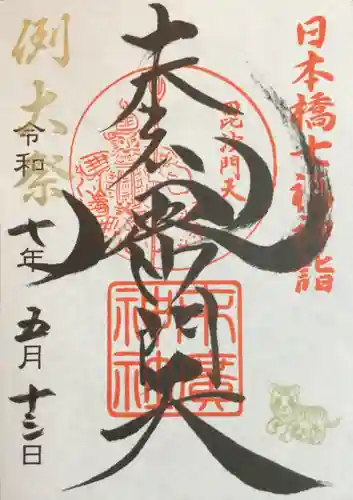 日本橋七福神詣
毘沙門天
末廣毘沙門天
末廣神社
例大祭
令和七年五月十三日